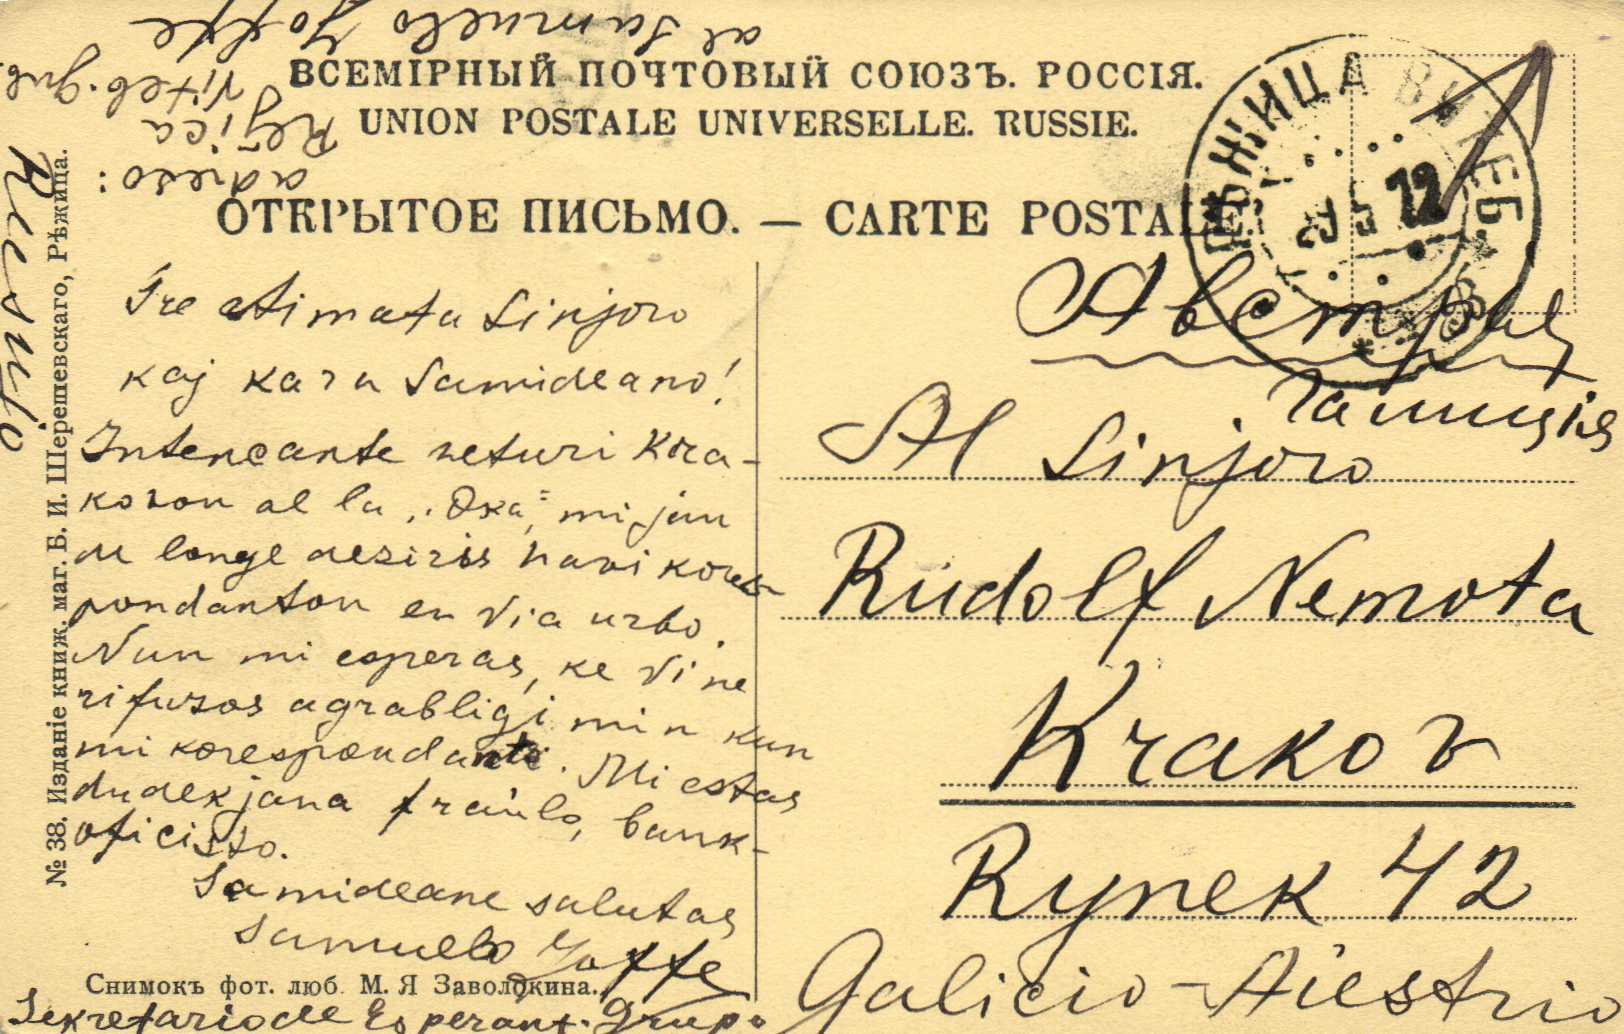 ВСЕМІРНЫЙ ПОЧТОВЫЙ СОЮЗЪ. РОССІЯ.
UNION POSTALE UNIVERSELLE. RUSSIE.
ОТКРЫТОЕ ПИСЬМО. — CARTE POSTALE.
РѢЖИЦА ВИТЕБ.
5 12
Tre estimata Sinjoro
kaj kara Samideano!
Intencante veturi Kra-
kovon al la „Oka”, mi jam
de longe deziris havi kores-
pondanton en Via urbo.
Nun mi esperas, ke Vi ne
rifuzos agrabligi min kun
mi korespondante. Mi estas
dudekjana fraŭlo, bank-
oficisto.
Samideane salutas
Samuelo Joffe
Sekretario de Esperant. Grupo
adreso:
Reĵica
Viteb. gub.
al Samuelo Joffe
Rusujo
№ 38. Изданіе книж. маг. Б. И. Шерешевскаго, Рѣжица.
Снимокъ фот. люб. М. Я Заволокина.
Австрія
Галиція
Al Sinjoro
Rudolf Nemota
Krakov
Rynek 42
Galicio-Aŭstrio